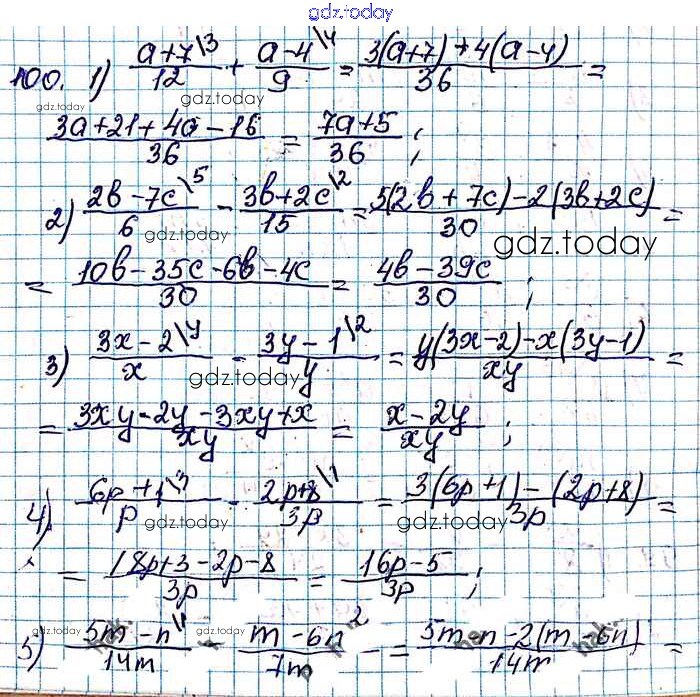 gdz.today
100. 1) (a+7\3)/12 + (a-4\4)/9 = (3(a+7)+4(a-4))/36 =
gdz.today gdz.today
(3a+21+4a-16)/36 = (7a+5)/36 ;
2) (2b-7c\5)/6 - (3b+2c\2)/15 = (5(2b+7c)-2(3b+2c))/30 =
gdz.today gdz.today
= (10b-35c-6b-4c)/30 = (4b-39c)/30 ;
3) (3x-2\y)/x - (3y-1\2)/y = (y(3x-2)-x(3y-1))/xy =
gdz.today
= (3xy-2y-3xy+x)/xy = (x-2y)/xy ;
4) (6p+1\3)/p - (2p+8\1)/3p = (3(6p+1)-(2p+8))/3p =
gdz.today gdz.today
= (18p+3-2p-8)/3p = (16p-5)/3p ;
5) (5m-n\1)/14m - (m-6n 2)/7m = (5m-n-2(m-6n))/14m =
gdz.today gdz.today